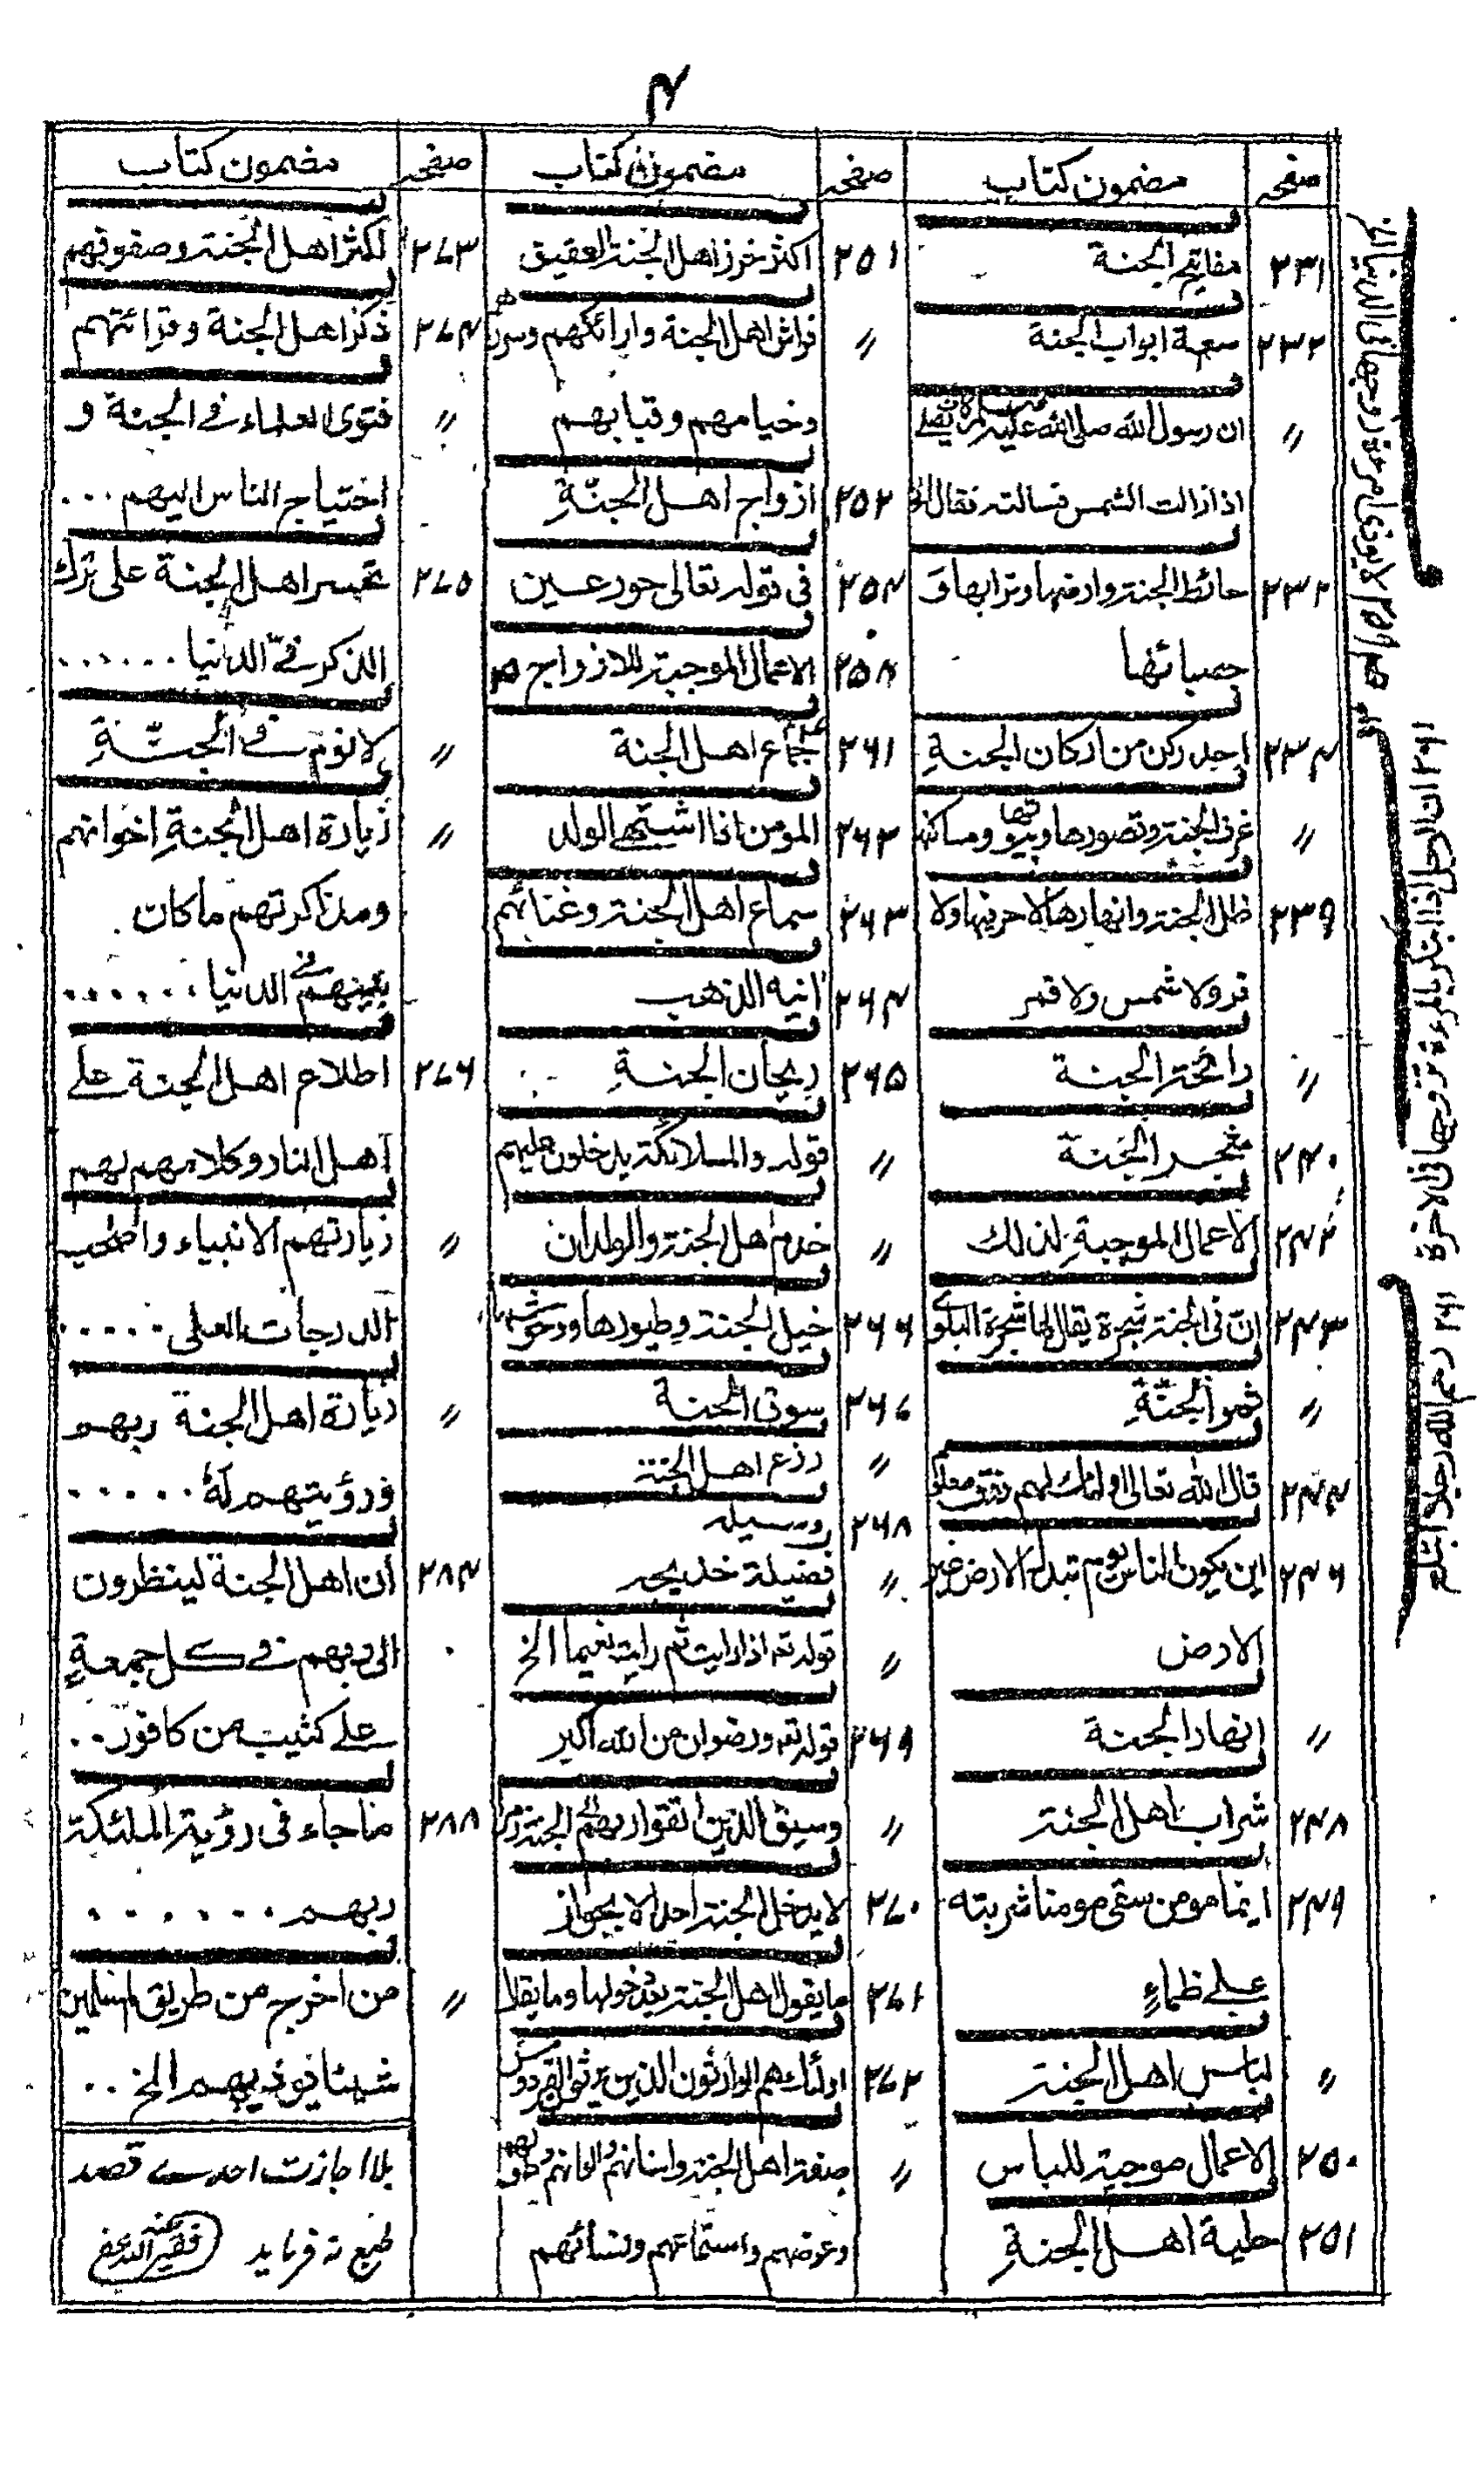 ۴
صفحہ مضمون کتاب
۲۳۱ مفاتیح الجنة
۲۳۲ سعة ابواب الجنة
〃 ان رسول الله صلی الله علیه
اذا زالت الشمس فسالته فقال الخ
۲۳۳ حائط الجنة وارضها وترابها و
حصبائها
۲۳۴ احد ركن من اركان الجنة
〃 غرف الجنة وقصورها وبيوتها ومساكنها
۲۳۹ ظل الجنة وانهارها لا حر فيها ولا
قر ولا شمس ولا قمر
〃 رائحة الجنة
۲۴۰ شجر الجنة
۲۴۲ الاعمال الموجبة لذلك
۲۴۳ ان فی الجنة شجرة يقال لها شجرة البلوی
〃 ثمر الجنّة
۲۴۴ قال الله تعالی اولئك لهم رزق معلوم
۲۴۶ این یکون الناس یوم تبدل الارض غیر
الارض
〃 انهار الجنة
۲۴۸ شراب اهل الجنة
۲۴۹ ایما مومن سقی مومنا شربته
علی ظماء
〃 لباس اهل الجنة
۲۵۰ الاعمال موجبة للباس
۲۵۱ حلية اهل الجنة
صفحہ مضمون کتاب
۲۵۱ اکثر خرز اهل الجنة العقیق
〃 فراش اهل الجنة وارائکهم وسررهم
وخیامهم وقبابهم
۲۵۲ ازواج اهل الجنّة
۲۵۴ فی قوله تعالی حور عین
۲۵۸ الاعمال الموجبة للازواج
۲۶۱ جماع اهل الجنة
۲۶۲ المومن اذا اشتهی الولد
۲۶۳ سماع اهل الجنة وغنائهم
۲۶۴ انیه الذهب
۲۶۵ ریحان الجنة
〃 قوله والملائكة يدخلون عليهم
〃 خدم اهل الجنة والولدان
۲۶۶ خیل الجنة وطیورها ووحوشها
۲۶۷ سوق الجنة
〃 زرع اهل الجنة
۲۶۸ وسیله
〃 فضیلة خدیجہ
〃 قوله تع اذا رایت ثم رایت نعیما الخ
۲۶۹ قوله تع ورضوان من الله اکبر
〃 وسیق الذین اتقوا ربهم الی الجنة زمرا
۲۷۰ لا یدخل الجنة احد الا بجواز
۲۷۱ ما یقول اهل الجنة بعد دخولها وما یقال
۲۷۲ اولئك هم الوارثون الذین یرثون الفردوس
〃 صفة اهل الجنة واسنانهم والوانهم وطولهم
وعرضهم واسمائهم ونسائهم
صفحہ مضمون کتاب
۲۷۳ اکثر اهل الجنة وصفوفهم
۲۷۴ ذکر اهل الجنة وقرائتهم
〃 فتوی العلماء فی الجنة و
احتیاج الناس الیهم ...
۲۷۵ تحسر اهل الجنة علی ترك
الذکر فی الدنیا ......
〃 لا نوم فی الجنّة
〃 زیارة اهل الجنة اخوانهم
ومذاکرتهم ما کان
بینهم فی الدنیا ......
۲۷۶ اطلاع اهل الجنة علی
اهل النار وکلامهم لهم
〃 زیارتهم الانبیاء واصحٰب
الدرجات العلی .....
〃 زیارة اهل الجنة ربهم
ورؤیتهم له .....
۲۸۴ ان اهل الجنة لینظرون
الی ربهم فی کل جمعة
علی کثیب من کافور ..
۲۸۸ ما جاء فی رؤیة الملئکة
ربهم ......
〃 من اخرج من طریق المسلمین
شیئا یوذیهم الخ ..
بلا اجازت احدے قصد
طبع نہ فرماید فقیر الله عفی عنه
۲۶۱ ان الرجل اذا ابتکر بالمرءة تزوجها فی الاخرة
۲۶۱ رحم الله رجلا ابتلی